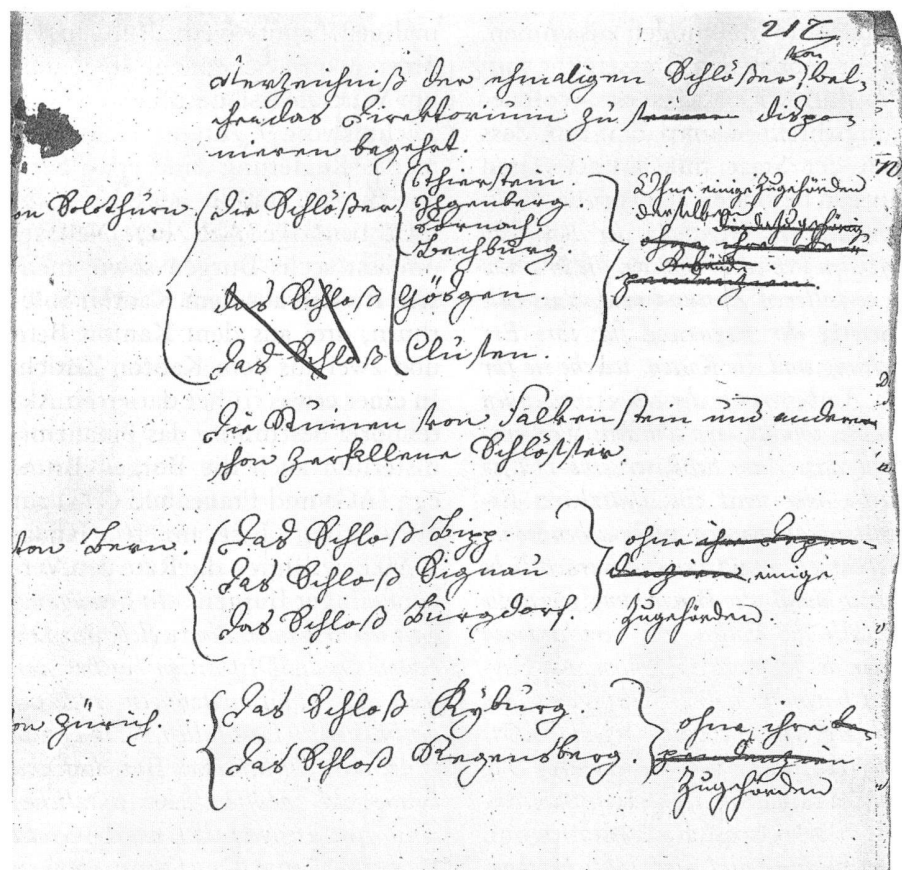 217
Verzeichniß der ehmaligen Schlößer, von wel-
chen das Direktorium zu dispo-
niren begehrt.
on Solothurn. Die Schlößer
Thierstein
Ilgenberg.
Dornach.
Bechburg.
Das Schloß Gösgen
Das Schloß Clusen.
Ohne einige Zugehörden
derselben
ohne ihre
Gebäude
Die Ruinen von Falkenstein und andern
schon zerfallene Schlösser.
Von Bern. Das Schloß Bipp
Das Schloß Signau
Das Schloß Burgdorf.
ohne ihre Depen-
denzien einige
Zugehörden.
on Zürich. Das Schloß Kyburg.
Das Schloß Regensberg.
ohne ihre De-
pendenzien
Zugehörden